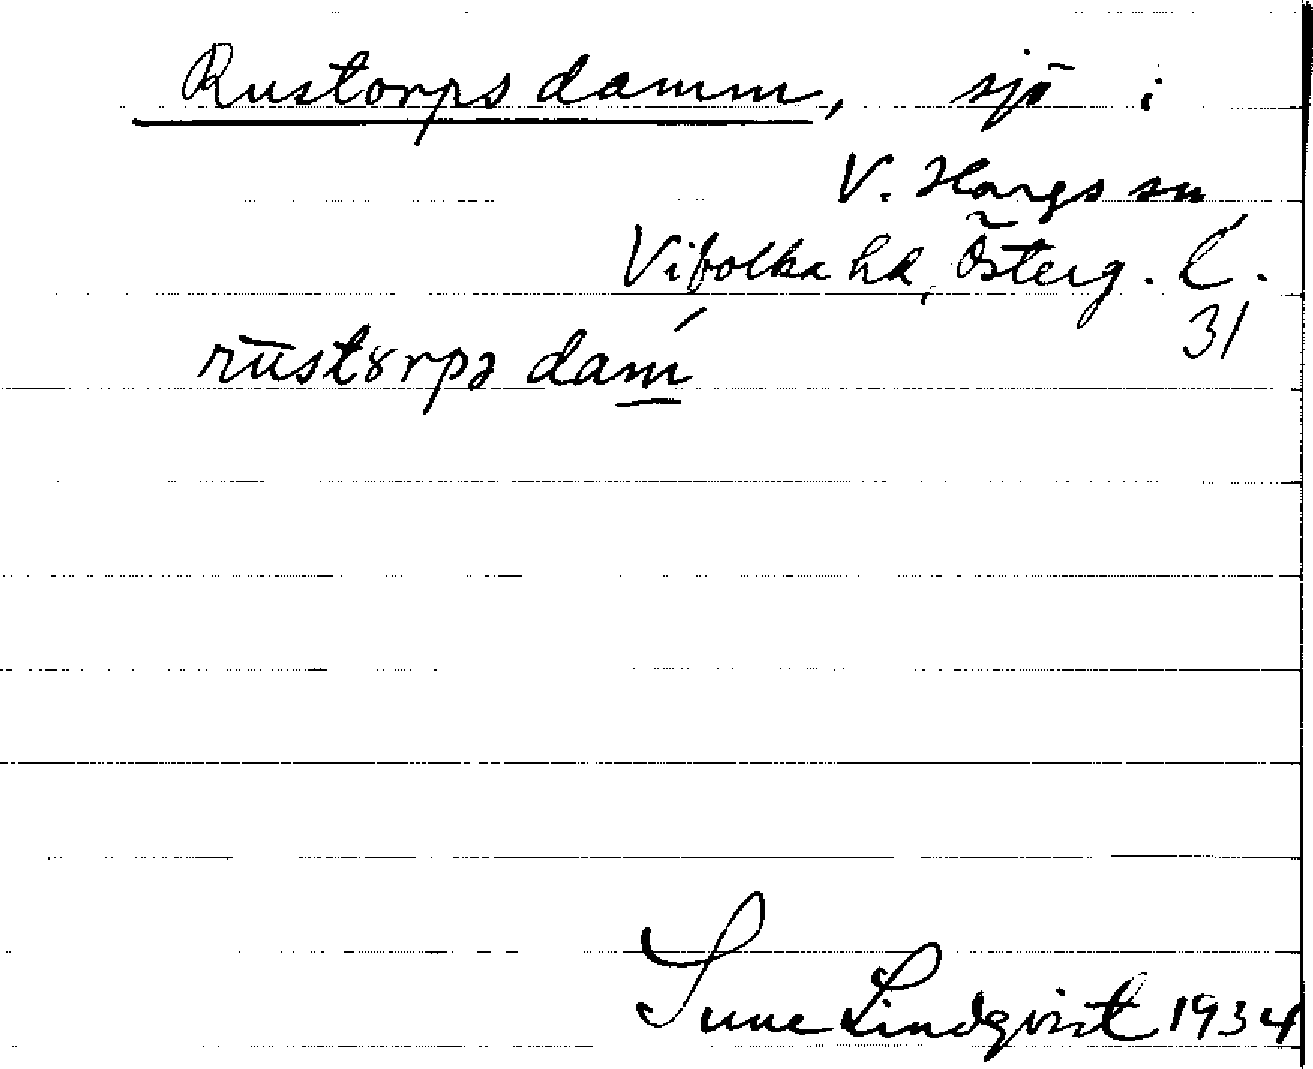 Rustorps damm, sjö i
V. Hargs sn
Vifolka hd, Österg. l.
31
rūstȣrpa daḿ̲
Sune Lindqvist 1934